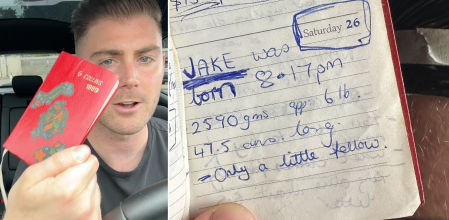 COLLINS
1989
Saturday 26
JAKE was
born 8.17pm
2590gms app 6lb.
47.5 cms. long.
- Only a little fellow.